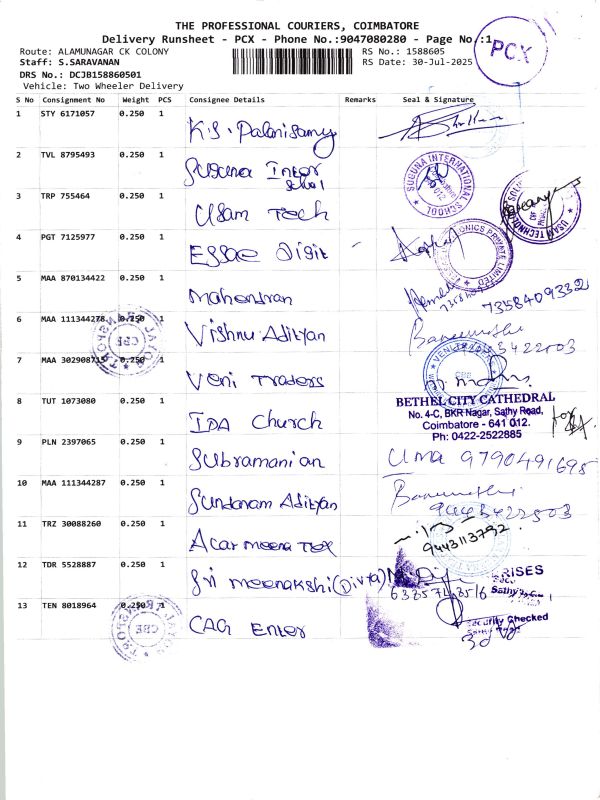 THE PROFESSIONAL COURIERS, COIMBATORE
Delivery Runsheet - PCX - Phone No.:9047080280 - Page No.:1
PCX
Route: ALAMUNAGAR CK COLONY
RS No.: 1588605
Staff: S.SARAVANAN
RS Date: 30-Jul-2025
DRS No.: DCJB158860501
Vehicle: Two Wheeler Delivery
S No Consignment No Weight PCS Consignee Details Remarks Seal & Signature
1 STY 6171057 0.250 1 K.S. Palanisamy
2 TVL 8795493 0.250 1 Suguna Inter School
SUGUNA INTERNATIONAL SCHOOL
3 TRP 755464 0.250 1 Usam Tech
4 PGT 7125977 0.250 1 Essae Digit
5 MAA 870134422 0.250 1 Mahendran
7358409332
6 MAA 111344278 0.250 1 Vishnu Adityan
7 MAA 302908735 0.250 1 Veni Traders
8 TUT 1073080 0.250 1 IDA Church
BETHEL CITY CATHEDRAL
No. 4-C, BKR Nagar, Sathy Road,
Coimbatore - 641 012.
Ph: 0422-2522885
9 PLN 2397065 0.250 1 Subramanian Uma 9790491695
10 MAA 111344287 0.250 1 Sundaram Adityan
9443422503
11 TRZ 30088260 0.250 1 Acar meena Tex
9443113792
12 TDR 5528887 0.250 1 Sri meenakshi (Divya)
RISES
13 TEN 8018964 0.250 1 CAG Enter
Security Checked